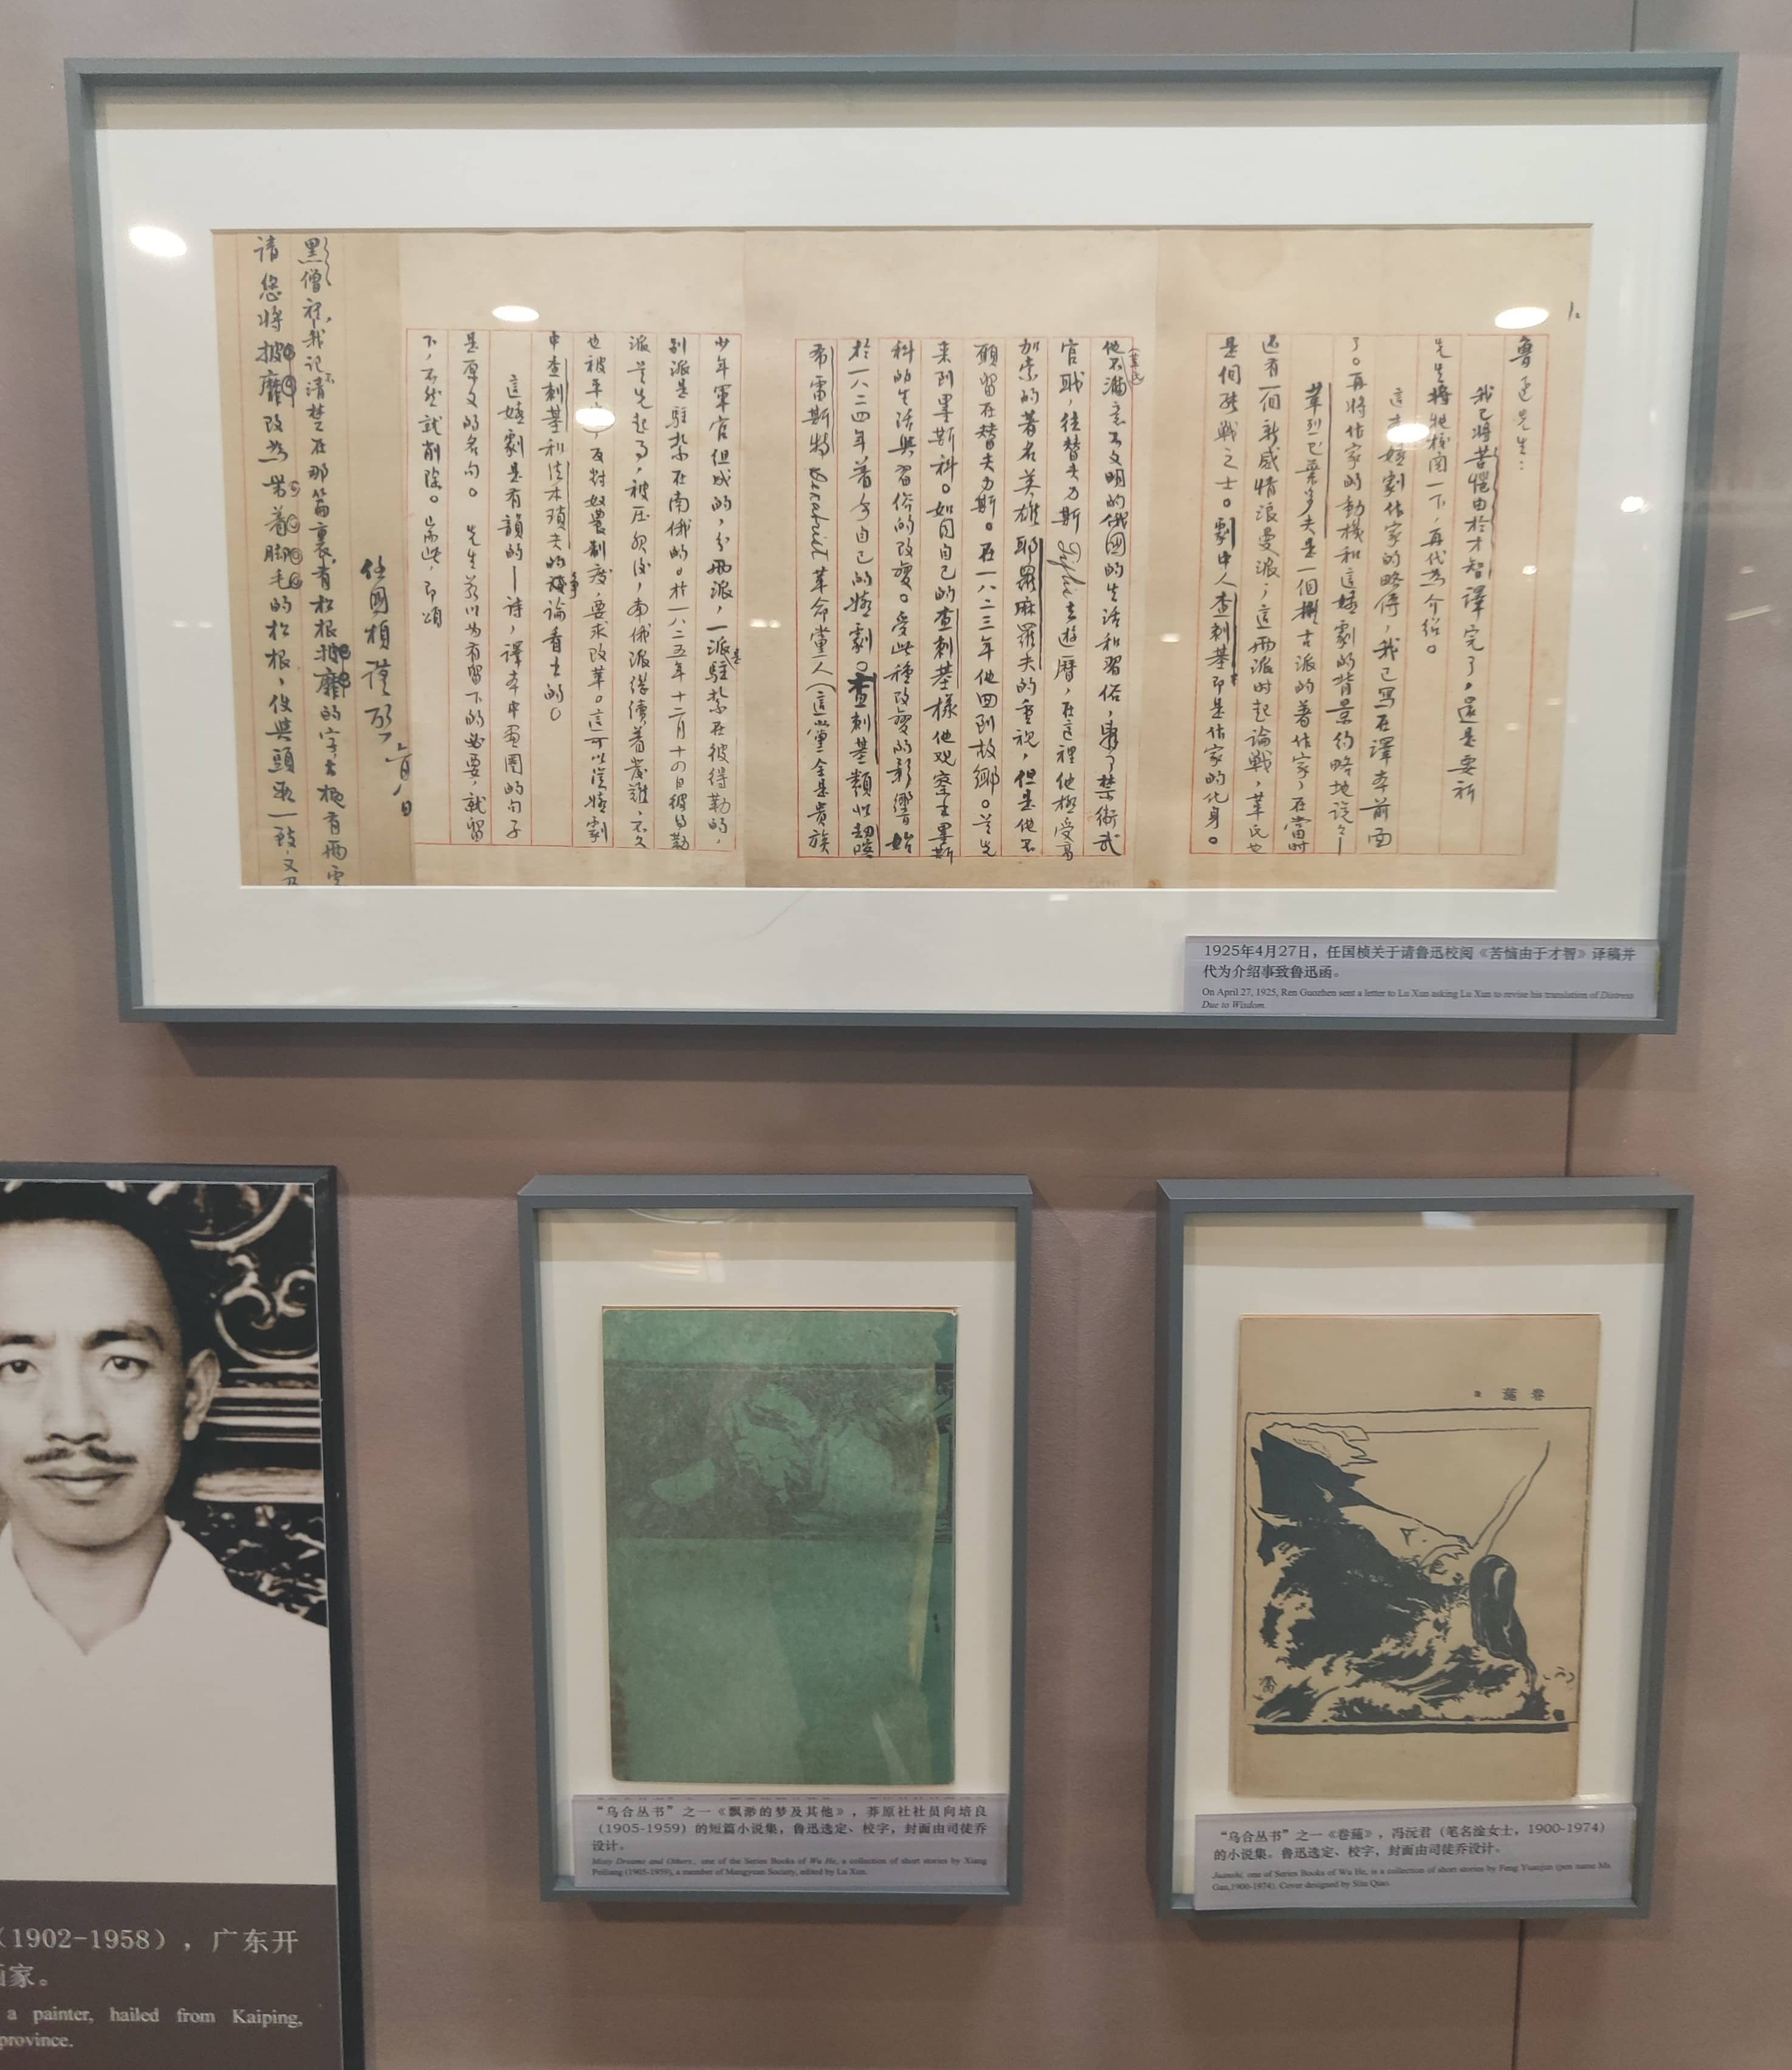 1.
魯迅先生：
我已將苦惱由於才智譯完了，還是要祈
先生將牠校閱一下，再代為介紹。
這本嬉劇作家的略傳，我已寫在譯本前面
了。再將作家的動機和這嬉劇的背景約略地說說—
是一個擬古派的著作家，在當時
還有一個新感情浪漫派，這兩派時起論戰，葦氏也
是個能戰之士。劇中人查刺基即是作家的化身。
他不滿意不文明的俄國的生活和習俗，棄了禁衛武
官職，往替夫力斯 Tiflis 去遊歷，在這裡他極受高
加索的著名英雄耶羅麻羅夫的重視，但是他不
願留在替夫力斯。在一八二三年他回到故鄉。首先
來到墨斯科。如同自己的查刺基樣他观察出墨斯
科的生活與習俗的改變。受此種改變的影響始
於一八二四年著今自己的嬉劇。查刺基類似
希雷斯特 Dekabrist 革命黨人（這黨全是貴族
少年軍官組成的，分兩派，一派是駐紮在彼得勒的，
別派是駐紮在南俄的。於一八二五年十二月十四日彼得勒
派首先起事，被压服後，南俄派繼續着發難，不久
也被平，反對奴農制度，要求改革。這可以從嬉劇
中查刺基和法木瑣夫的爭論看出的。
這嬉劇是有韻的—詩，譯本中畫圈的句子
是原文的名句。先生若以为有留下的必要，就留
下，不然就削除。耑此，即頌
任國楨謹啓
黑僧裡，我記不清楚在那篇裏，有松根披靡的字，大概有兩處
請您將披靡改為帶着脚毛的松根，使與頭取一致，又及
1925年4月27日，任国桢关于请鲁迅校阅《苦恼由于才智》译稿并
代为介绍事致鲁迅函。
On April 27, 1925, Ren Guozhen sent a letter to Lu Xun asking Lu Xun to revise his translation of Distress
Due to Wisdom.
（1902-1958），广东开
画家。
a painter, hailed from Kaiping,
province.
“乌合丛书”之一《飘渺的梦及其他》，莽原社社员向培良
（1905-1959）的短篇小说集，鲁迅选定、校字，封面由司徒乔
设计。
Misty Dreams and Others, one of the Series Books of Wu He, a collection of short stories by Xiang
Peiliang (1905-1959), a member of Mangyuan Society, edited by Lu Xun.
卷葹
“乌合丛书”之一《卷葹》，冯沅君（笔名淦女士，1900-1974）
的小说集。鲁迅选定、校字，封面由司徒乔设计。
Juanshi, one of Series Books of Wu He, is a collection of short stories by Feng Yuanjun (pen name Ms
Gan,1900-1974). Cover designed by Situ Qiao.